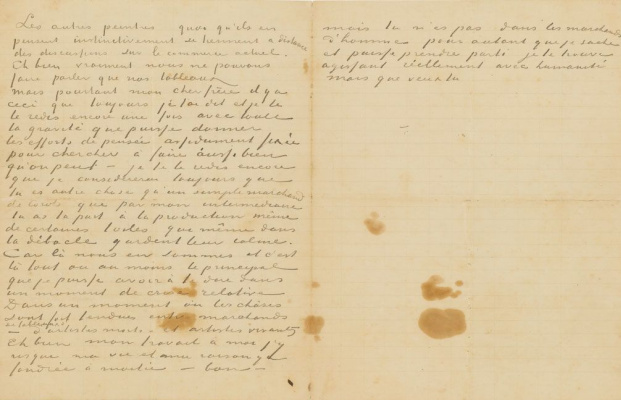 Les autres peintres quoi qu'ils en
pensent instinctivement se tiennent à distance
des discussions sur le commerce actuel.
Eh bien vraiment nous ne pouvons
faire parler que nos tableaux
mais pourtant mon cher frère il y a
ceci que toujours je t'ai dit et je te
le redis encore une fois avec toute
la gravité que puisse donner
les efforts de pensée assidument fixée
pour chercher à faire aussi bien
qu'on peut – je te le redis encore
que je considérerai toujours que
tu es autre chose qu'un simple marchand
de Corots que par mon intermédiaire
tu as ta part à la production même
de certaines toiles que même dans
la débacle gardent leur calme.
Car là nous en sommes et c'est
là tout ou au moins le principal
que je puisse avoir à te dire dans
un moment de crise relative
Dans un moment où les choses
sont fort tendues entre marchands
de tableaux
– d'artistes morts – et artistes vivants
Eh bien mon travail à moi j'y
risque ma vie et ma raison y a
fondrée à moitié – bon –
mais tu n'es pas dans les marchands
d'hommes pour autant que je sache
et puisse prendre parti je le trouve
agissant réellement avec humanité
mais que veux tu